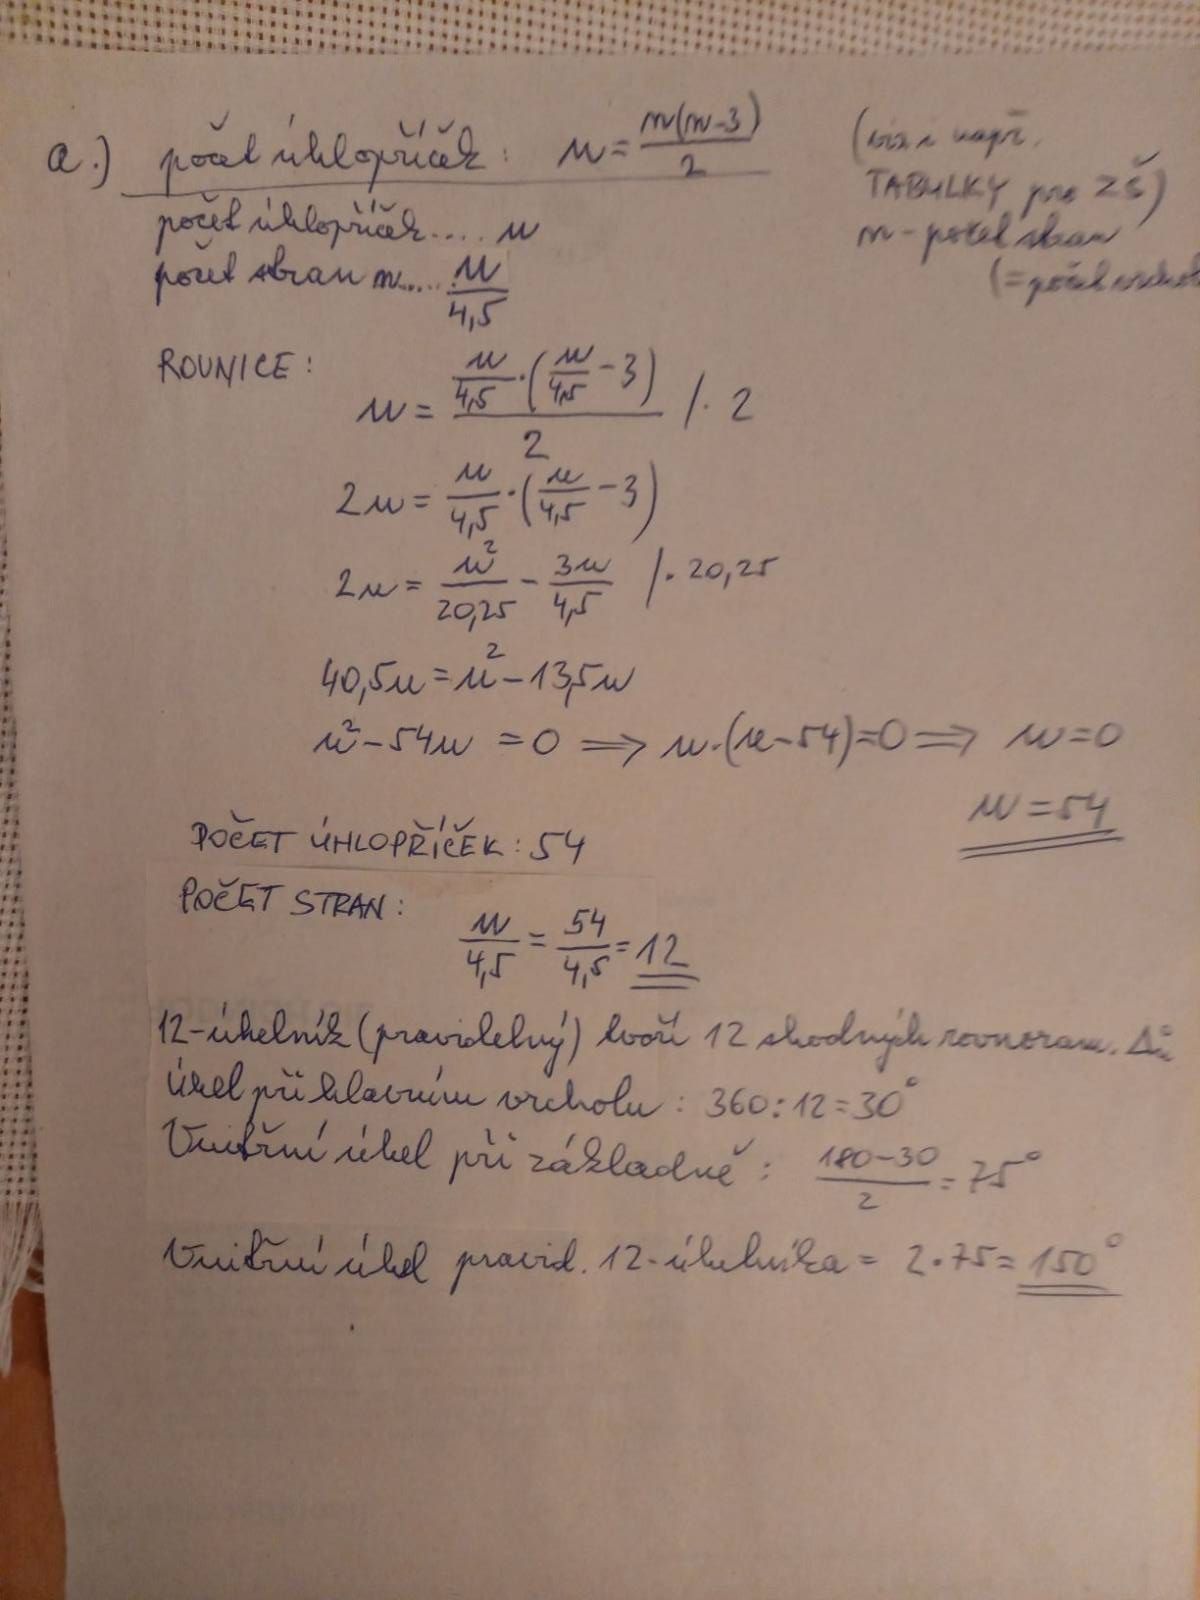 a.) počet úhlopříček: u = n(n-3)/2 (viz i např.
TABULKY pro ZŠ)
počet úhlopříček.... u n - počet stran
počet stran n..... u/4,5 (= počet
ROVNICE:
u = (u/4,5 · (u/4,5 - 3))/2 /· 2
2u = u/4,5 · (u/4,5 - 3)
2u = u²/20,25 - 3u/4,5 /· 20,25
40,5u = u² - 13,5u
u² - 54u = 0 ⇒ u·(u-54)=0 ⇒ u=0
u=54
POČET ÚHLOPŘÍČEK: 54
POČET STRAN:
u/4,5 = 54/4,5 = 12
12-úhelník (pravidelný) tvoří 12 shodných rovnoram. Δů
úhel při hlavním vrcholu: 360:12=30°
Vnitřní úhel při základně: (180-30)/2 = 75°
Vnitřní úhel pravid. 12-úhelníka = 2·75= 150°